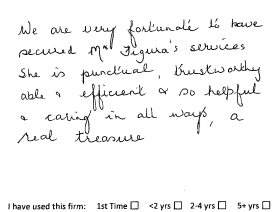 We are very fortunate to have
secured Mrs Figura's services
She is punctual, trustworthy
able & efficient & so helpful
& caring in all ways, a
real treasure
I have used this firm: 1st Time ☐ <2 yrs ☐ 2-4 yrs ☐ 5+ yrs ☐